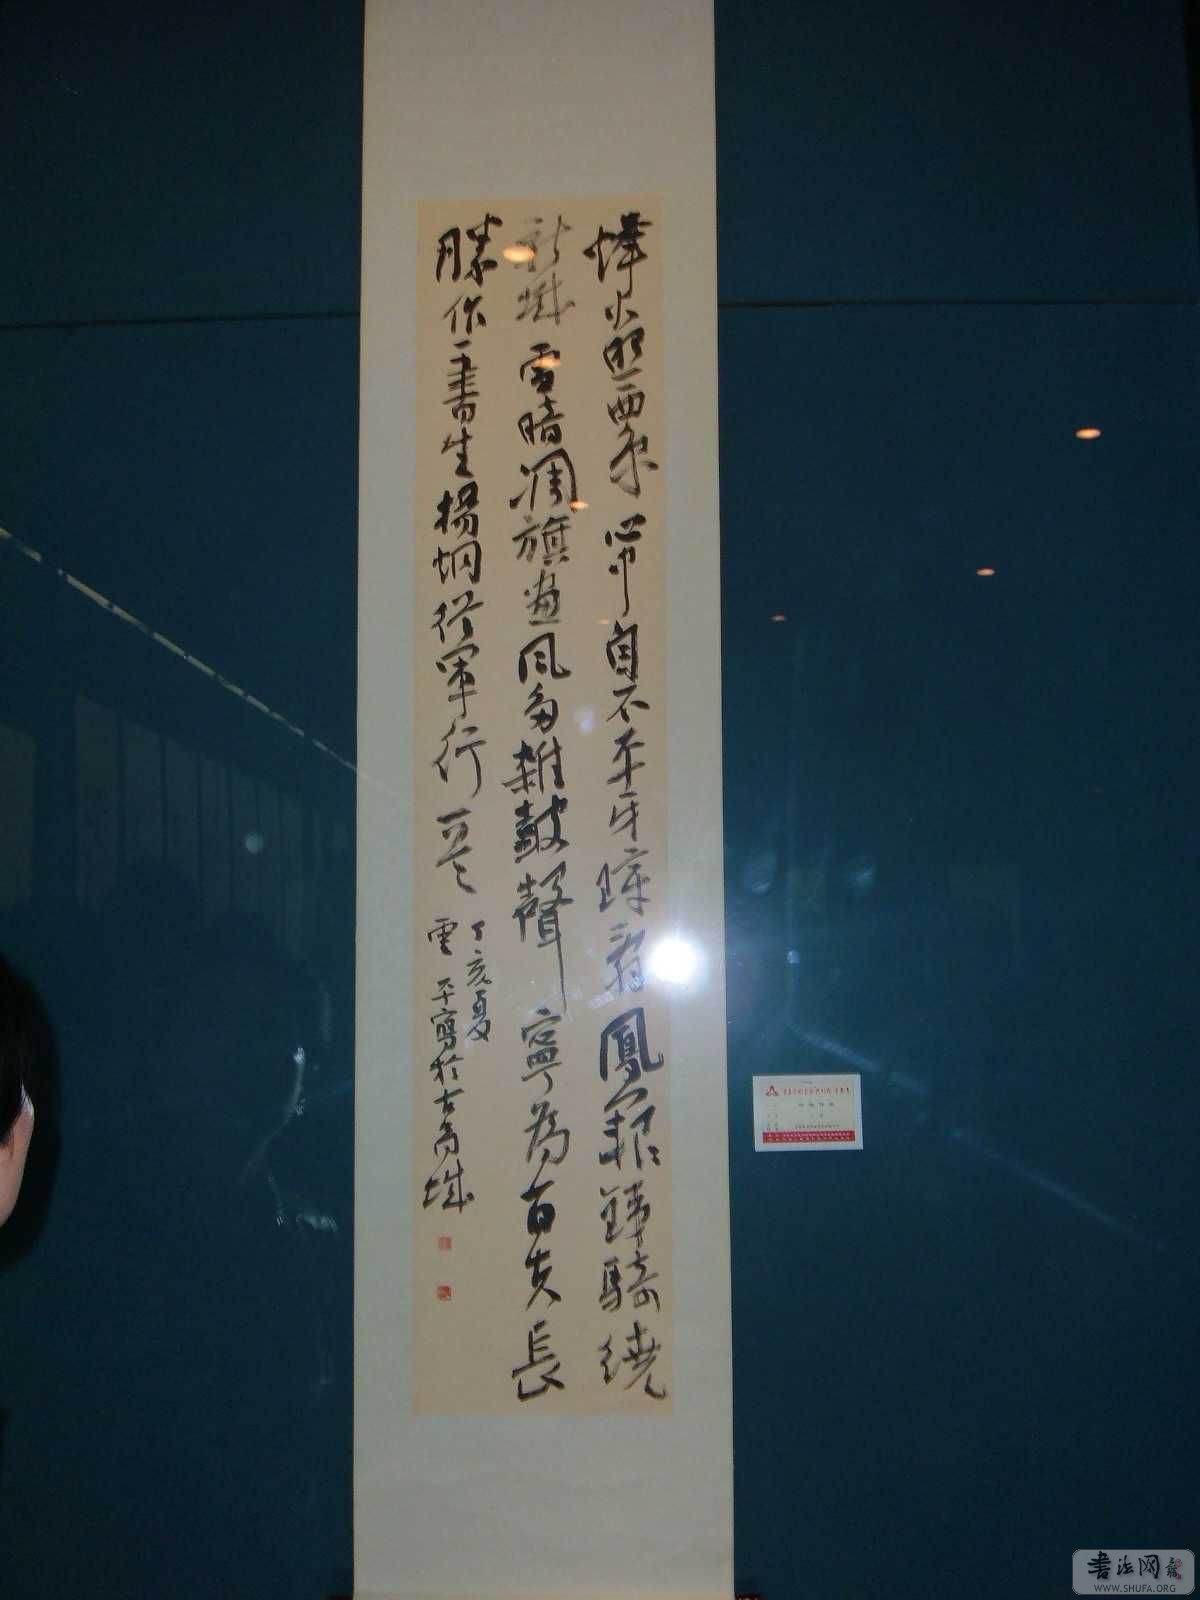 烽火照西京心中自不平牙璋辭鳳闕鐵騎繞
龍城雪暗凋旗畫風多雜鼓聲寧為百夫長
勝作一書生楊炯從軍行
丁亥夏
雲平寫於古商城
書法网
WWW.SHUFA.ORG